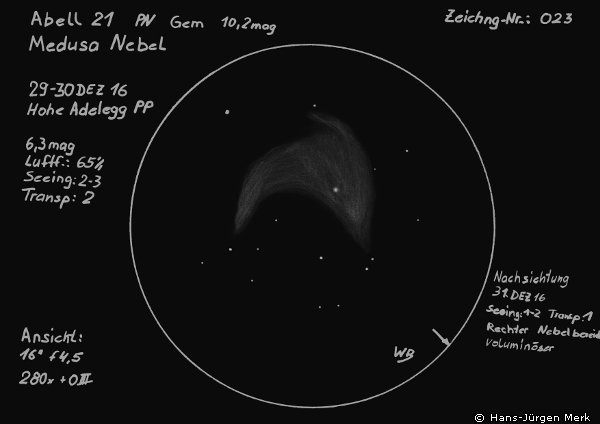 Abell 21 PN Gem 10,2mag
Medusa Nebel
Zeichng-Nr.: 023
29-30 DEZ 16
Hohe Adelegg PP
6,3mag
Luftf.: 65%
Seeing: 2-3
Transp: 2
Nachsichtung
31.DEZ 16
Seeing: 1-2 Transp.: 1
Rechter Nebelbereich
voluminöser
Ansicht:
16" f4,5
280x + OIII
WB
© Hans-Jürgen Merk